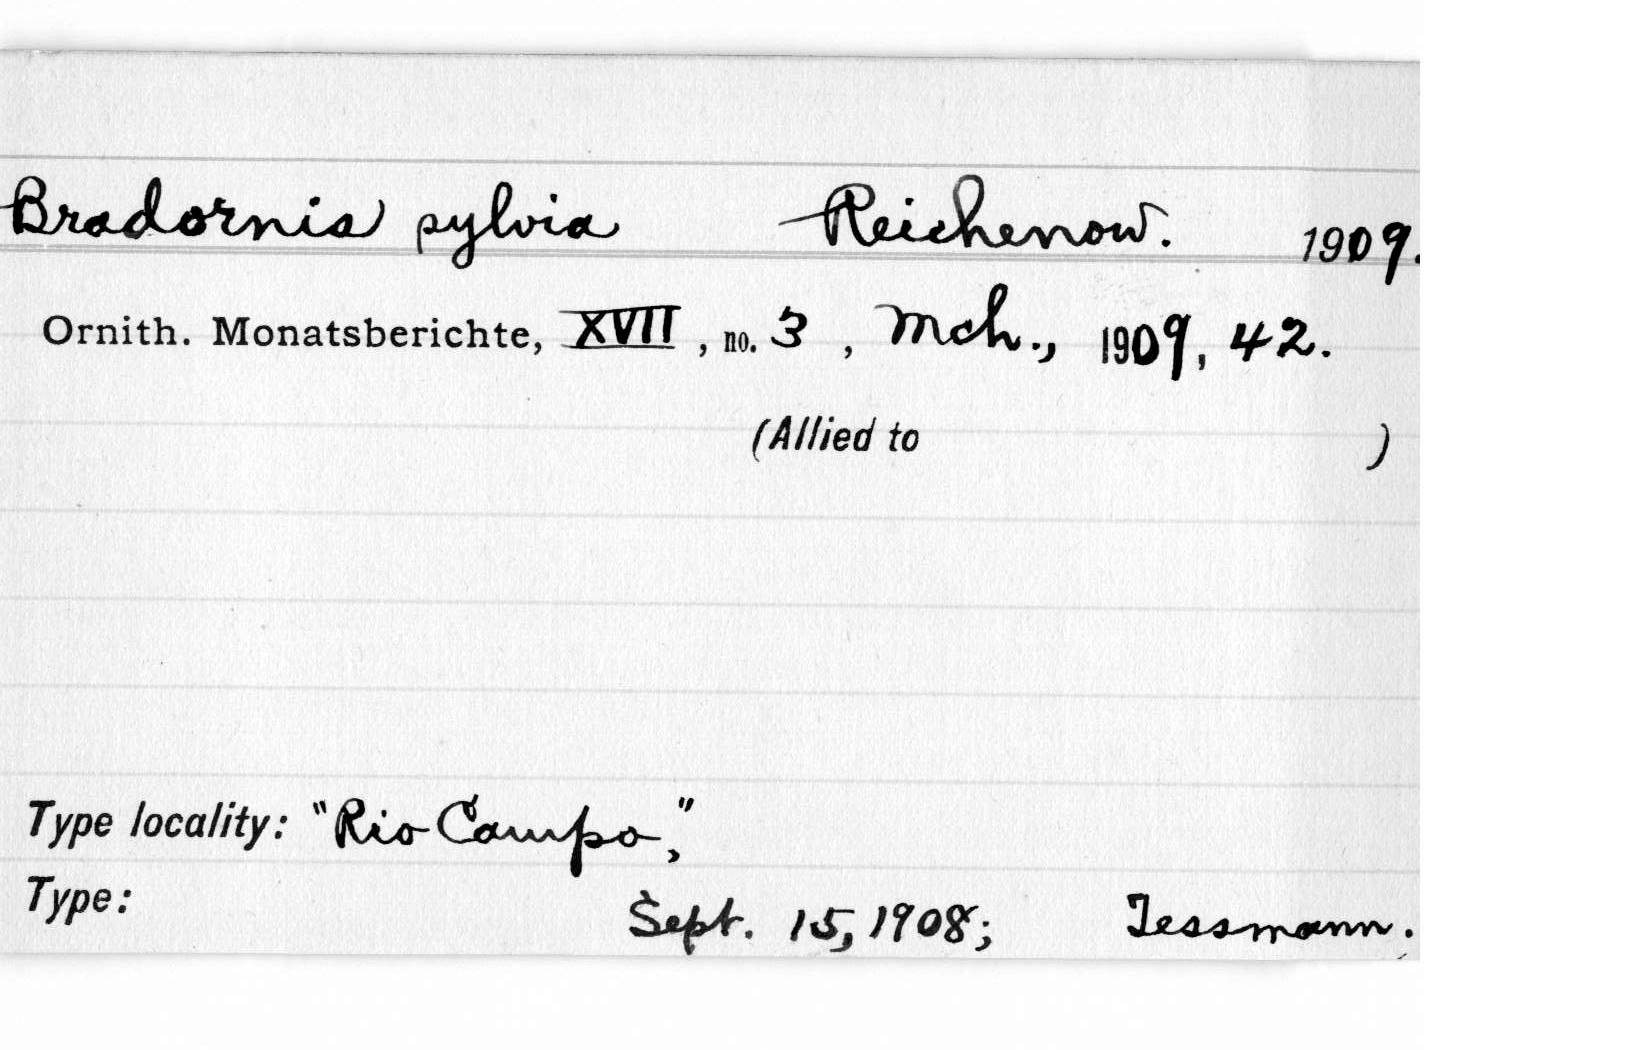 Bradornis sylvia Reichenow. 1909.
Ornith. Monatsberichte, XVII, no. 3, Mch., 1909, 42.
(Allied to )
Type locality: "Rio Campo,"
Type: Sept. 15, 1908; Tessmann.